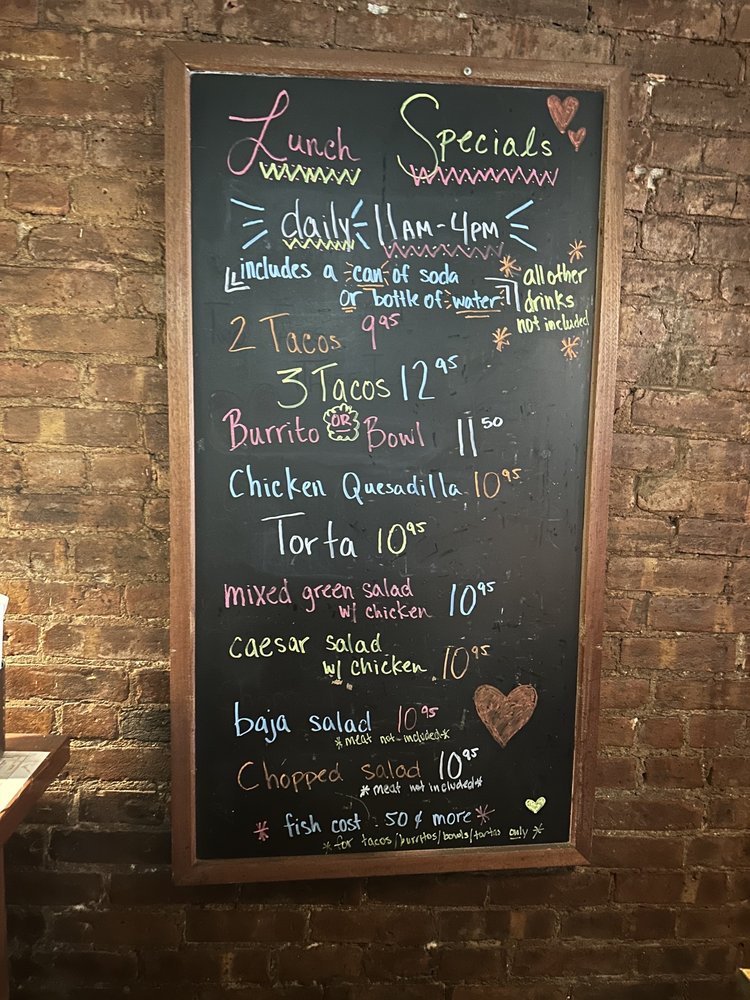 Lunch Specials
daily 11AM-4PM
includes a can of soda
or bottle of water
all other
drinks
not included
2 Tacos 9 95
3 Tacos 12 95
Burrito OR Bowl 11 50
Chicken Quesadilla 10 95
Torta 10 95
mixed green salad
w/ chicken 10 95
caesar salad
w/ chicken 10 95
baja salad 10 95
*meat not included*
Chopped salad 10 95
*meat not included*
* fish cost .50 ¢ more *
*for tacos/burritos/bowls/tortas only *